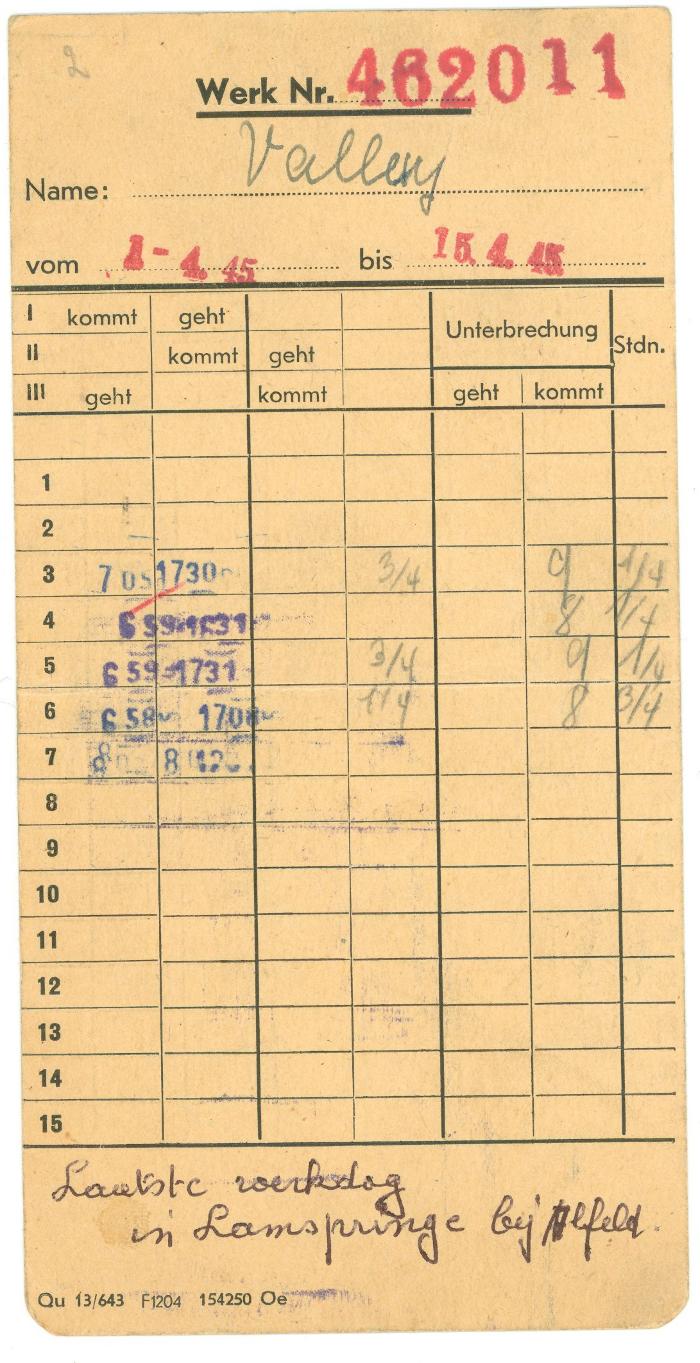 2
Werk Nr. 462011
Name: Vallery
vom 1-4.45 bis 15.4.45
I kommt geht Unterbrechung Stdn.
II kommt geht
III geht kommt geht kommt
1
2
3 7 05 1730 3/4 9 1/4
4 6 59 1631 8 1/4
5 6 59 1731 3/4 9 1/4
6 6 58 1708 1/4 8 3/4
7
8
9
10
11
12
13
14
15
Laatste werkdag
in Lamspringe bij Alfeld.
Qu 13/643 F1204 154250 Oe